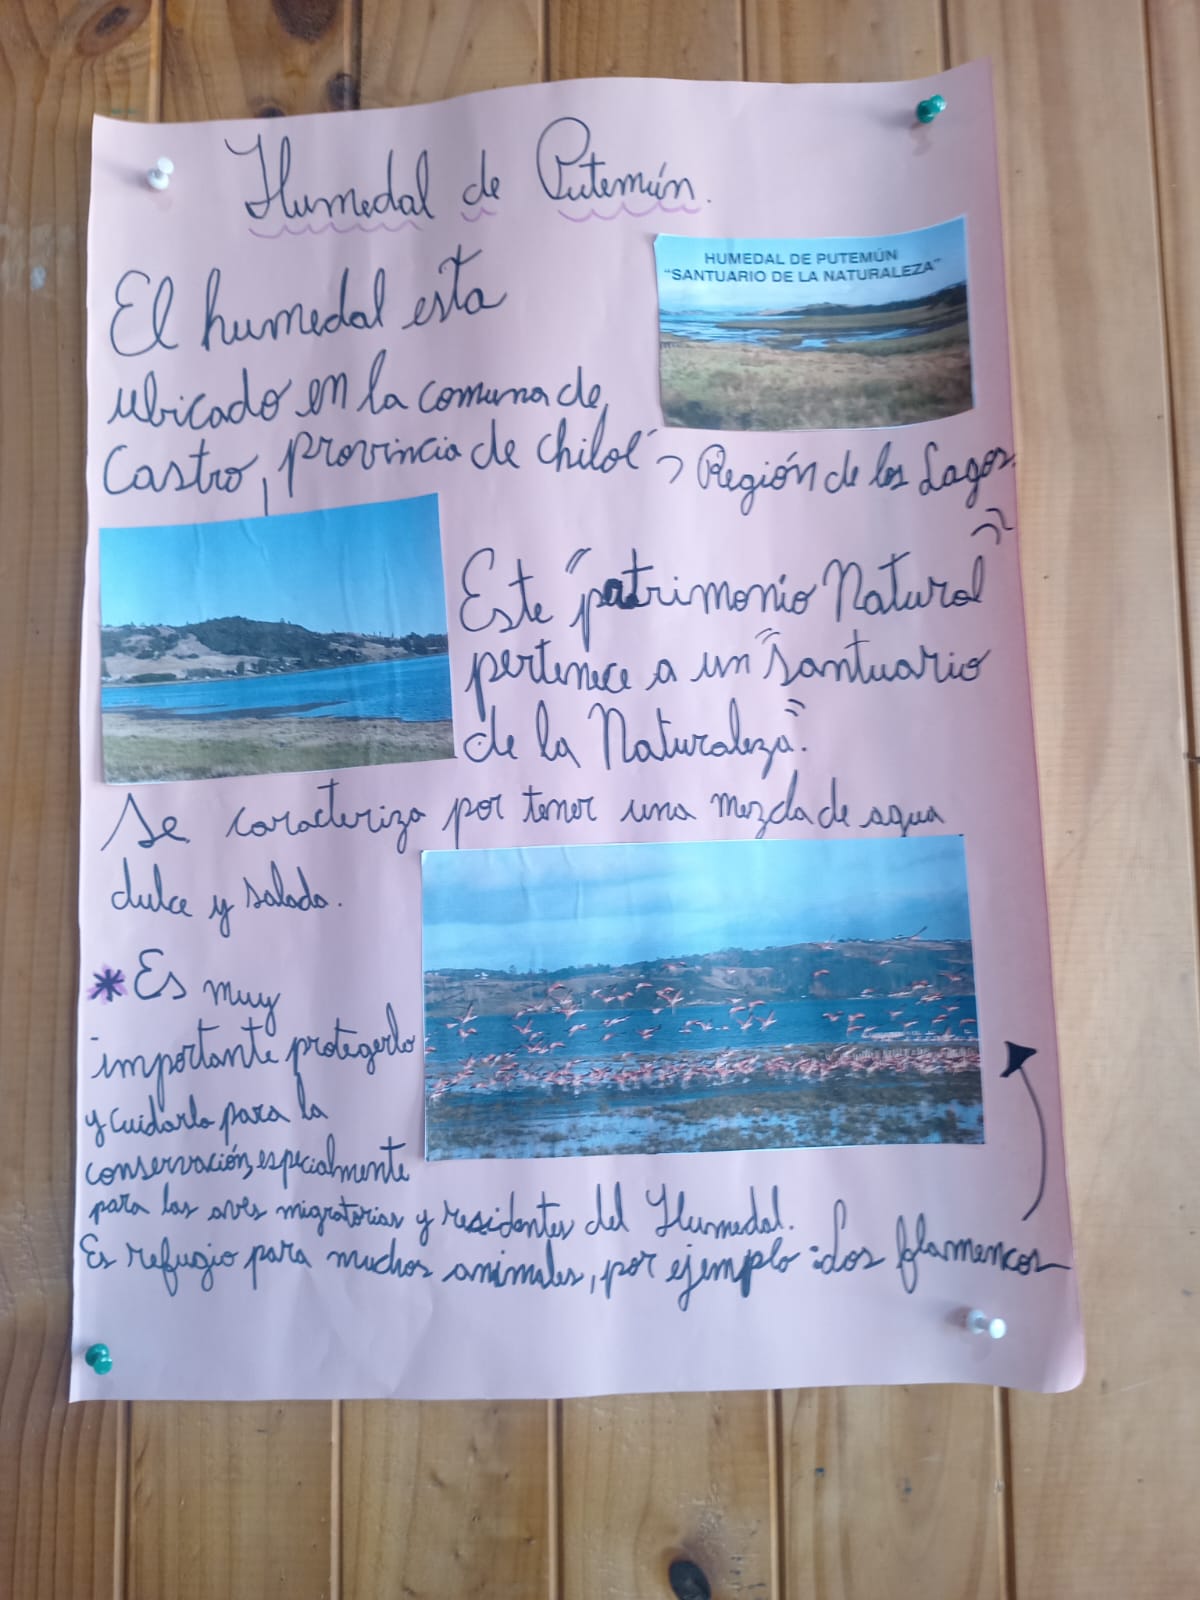 Humedal de Putemún.
HUMEDAL DE PUTEMÚN
"SANTUARIO DE LA NATURALEZA"
El humedal esta
ubicado en la comuna de
Castro, provincia de Chiloé, Región de los Lagos.
Este "patrimonio Natural"
pertenece a un "santuario
de la Naturaleza".
Se caracteriza por tener una mezcla de agua
dulce y salada.
* Es muy
importante protegerlo
y cuidarlo para la
conservación, especialmente
para las aves migratorias y residentes del Humedal.
Es refugio para muchos animales, por ejemplo: Los flamencos